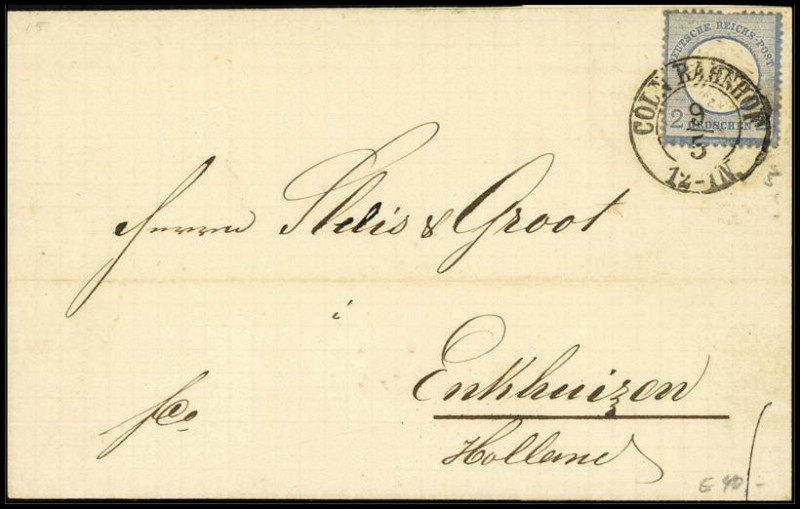 15
DEUTSCHE REICHS-POST
2 GROSCHEN 2
CÖLN BAHNHOF
9
5
12-1N.
Herren Stelis & Groot
i
Enkhuizen
fco
Holland
€ 40,-